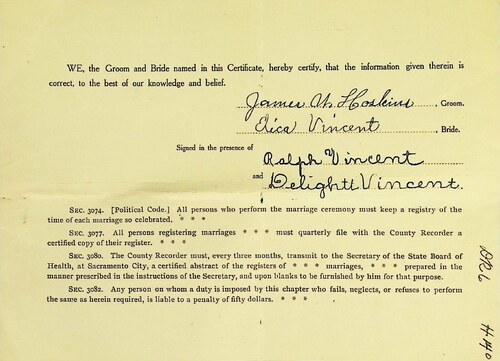 WE, the Groom and Bride named in this Certificate, hereby certify, that the information given therein is
correct, to the best of our knowledge and belief.
James W Hoskins, Groom.
Elica Vincent, Bride.
Signed in the presence of
Ralph Vincent
and Delightt Vincent.
SEC. 3074. [Political Code.] All persons who perform the marriage ceremony must keep a registry of the
time of each marriage so celebrated. * * *
SEC. 3077. All persons registering marriages * * * must quarterly file with the County Recorder a
certified copy of their register. * * *
SEC. 3080. The County Recorder must, every three months, transmit to the Secretary of the State Board of
Health, at Sacramento City, a certified abstract of the registers of * * * marriages, * * * prepared in the
manner prescribed in the instructions of the Secretary, and upon blanks to be furnished by him for that purpose.
SEC. 3082. Any person on whom a duty is imposed by this chapter who fails, neglects, or refuses to perform
the same as herein required, is liable to a penalty of fifty dollars. * * *